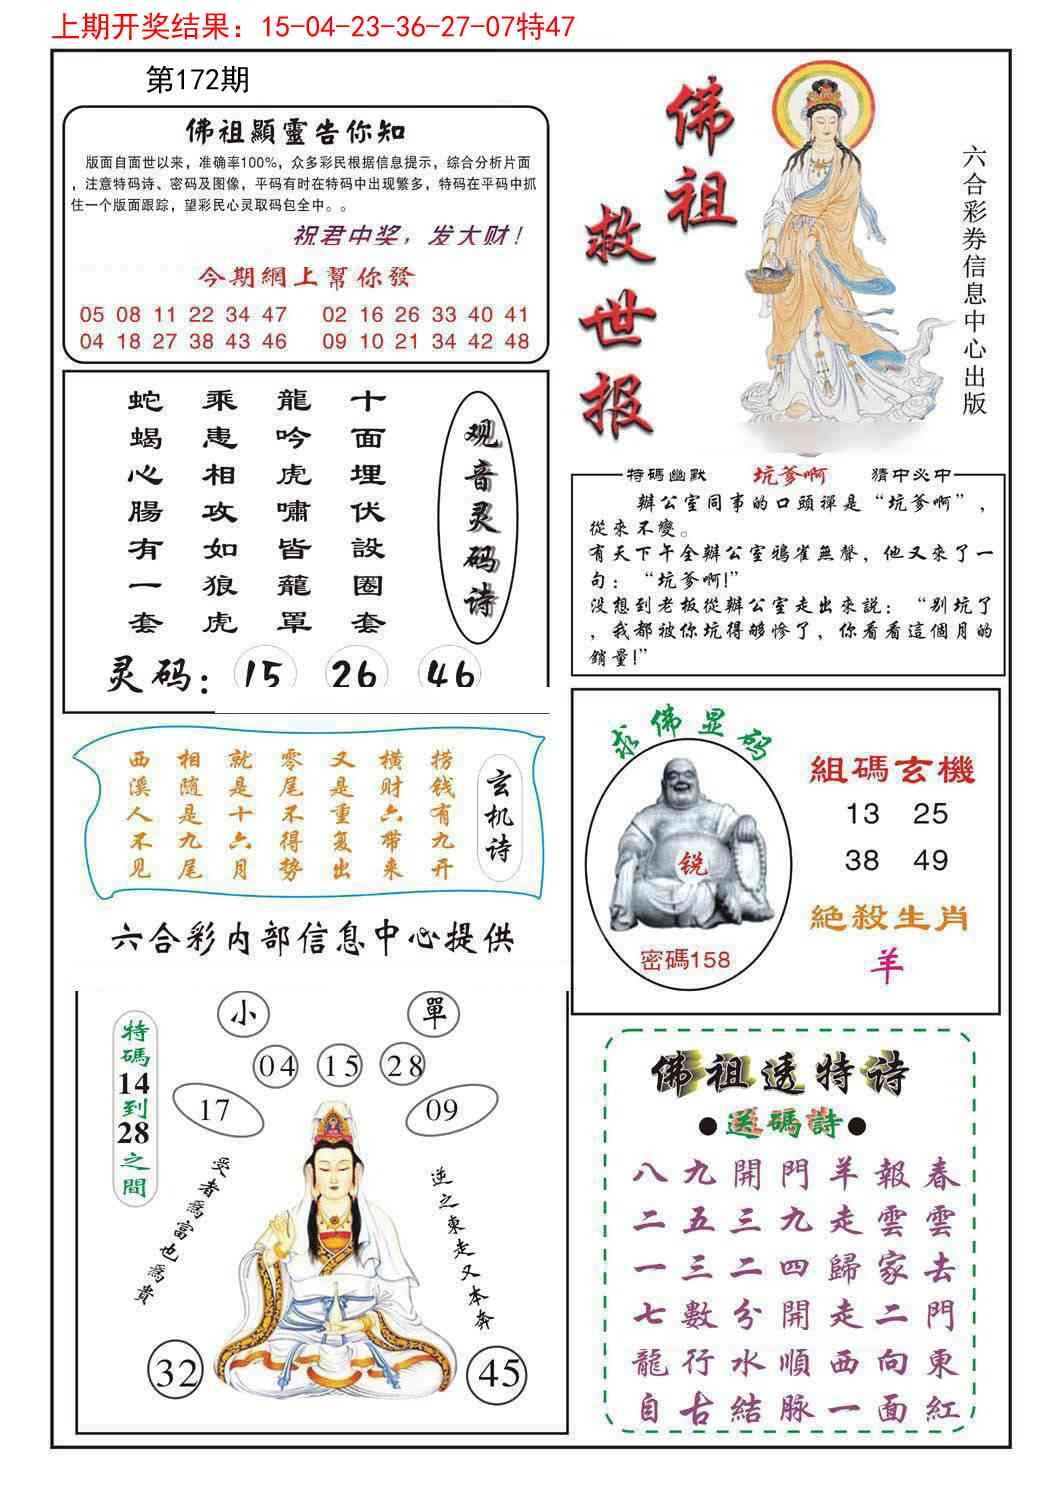 上期开奖结果：15-04-23-36-27-07特47
第172期
佛祖顯靈告你知
版面自面世以来，准确率100%，众多彩民根据信息提示，综合分析片面
，注意特码诗、密码及图像，平码有时在特码中出现繁多，特码在平码中抓
住一个版面跟踪，望彩民心灵取码包全中。。
祝君中奖，发大财！
今期網上幫你發
05 08 11 22 34 47 02 16 26 33 40 41
04 18 27 38 43 46 09 10 21 34 42 48
佛祖
救世报
六合彩券信息中心出版
观音灵码诗
十面埋伏設圈套
龍吟虎嘯皆龍罩
乘患相攻如狼虎
蛇蝎心腸有一套
灵码：15 26 46
特碼幽默 坑爹啊 猜中必中
辦公室同事的口頭禪是“坑爹啊”，
從來不變。
有天下午全辦公室鴉雀無聲，他又來了一
句：“坑爹啊！”
没想到老板從辦公室走出來説：“别坑了
，我都被你坑得够惨了，你看看這個月的
銷量！”
玄机诗
捞钱有九开
横财六带来
又是重复出
零尾不得势
就是十六月
相随是九尾
西溪人不见
六合彩内部信息中心提供
求佛显码
锐
密碼158
組碼玄機
13 25
38 49
絕殺生肖
羊
特碼14到28之間
小 單
04 15 28
17 09
受者爲富也爲貴
逆之東走又本奔
32 45
佛祖透特诗
●送碼詩●
八九開門羊報春
二五三九走雲雲
一三二四歸家去
七數分開走二門
龍行水順西向東
自古結脉一面紅